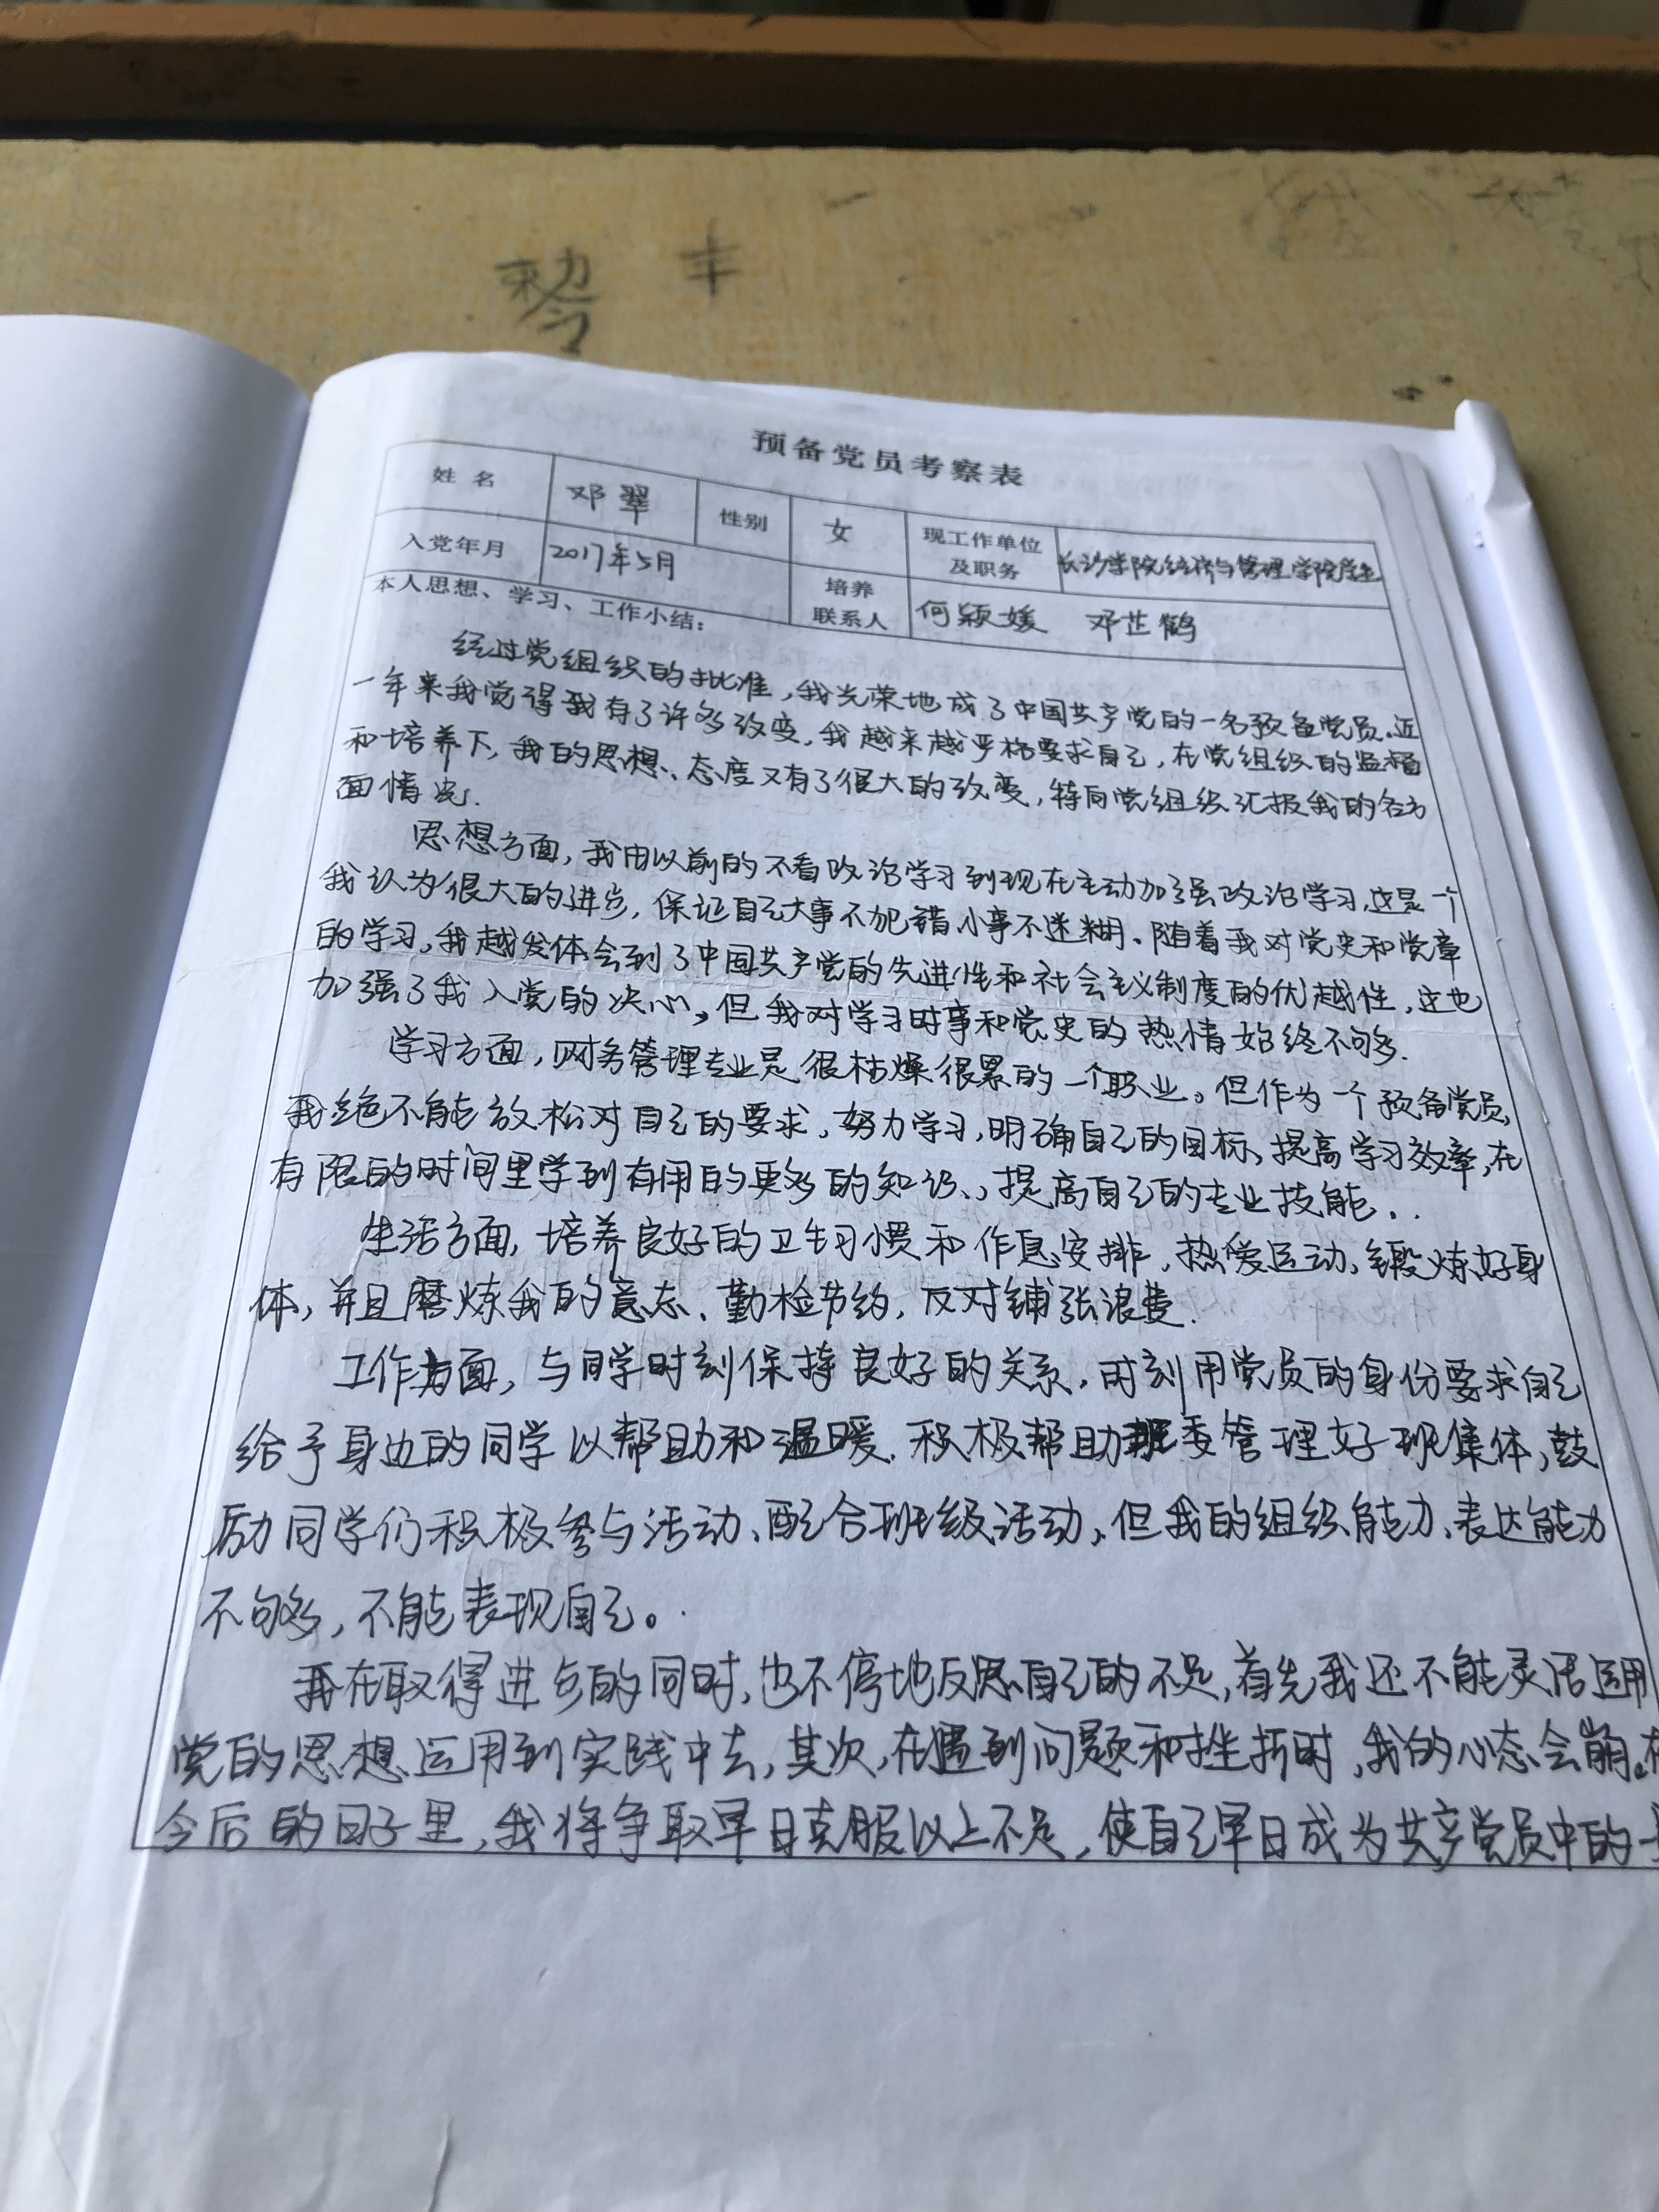 预备党员考察表
姓名 邓翠 性别 女 现工作单位及职务 长沙学院经济与管理学院学生
入党年月 2017年5月 培养联系人 何颖媛 邓芷鹤
本人思想、学习、工作小结：
经过党组织的批准，我光荣地成了中国共产党的一名预备党员.近
一年来我觉得我有了许多改变，我越来越严格要求自己，在党组织的监督
和培养下，我的思想、态度又有了很大的改变，特向党组织汇报我的各方
面情况.
思想方面，我由以前的不看政治学习到现在主动加强政治学习，这是一个
我认为很大的进步，保证自己大事不犯错小事不迷糊。随着我对党史和党章
的学习，我越发体会到了中国共产党的先进性和社会主义制度的优越性，这也
加强了我入党的决心，但我对学习时事和党史的热情始终不够.
学习方面，财务管理专业是很枯燥很累的一个职业。但作为一个预备党员，
我绝不能放松对自己的要求，努力学习，明确自己的目标，提高学习效率，在
有限的时间里学到有用的更多的知识，提高自己的专业技能.
生活方面，培养良好的卫生习惯和作息安排，热爱运动，锻炼好身
体，并且磨炼我的意志、勤检节约，反对铺张浪费.
工作方面，与同学时刻保持良好的关系，时刻用党员的身份要求自己
给予身边的同学以帮助和温暖.积极帮助班委管理好班集体，鼓
励同学们积极参与活动、配合班级活动，但我的组织能力、表达能力
不够多，不能表现自己。
我在取得进步的同时，也不停地反思自己的不足，首先我还不能灵活运用
党的思想运用到实践中去，其次，在遇到问题和挫折时，我的心态会崩。在
今后的日子里，我将争取早日克服以上不足，使自己早日成为共产党员中的一